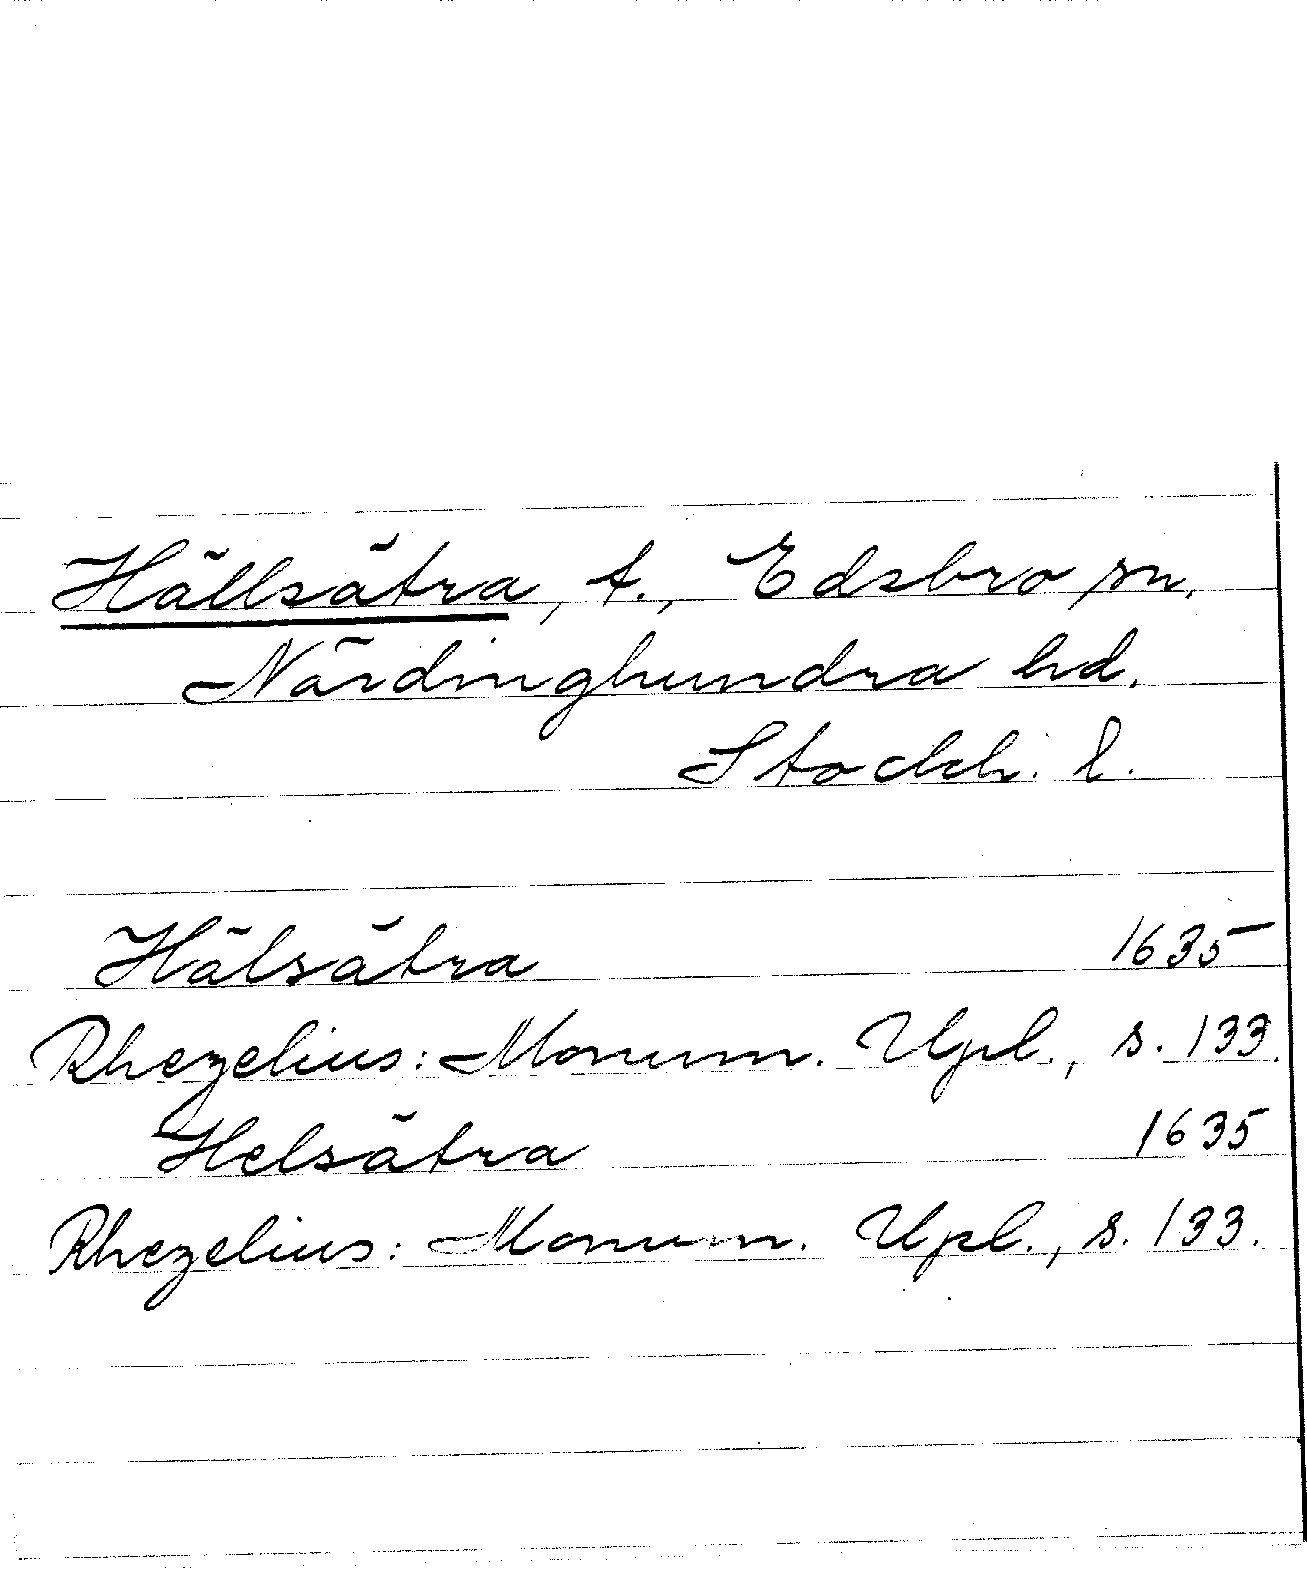 Hällsätra, t., Edsbro sn.
Närdinghundra hd.
Stockh. l.
Hälsätra 1635
Rhezelius: Monum. Upl., s. 133.
Helsätra 1635
Rhezelius: Monum. Upl., s. 133.